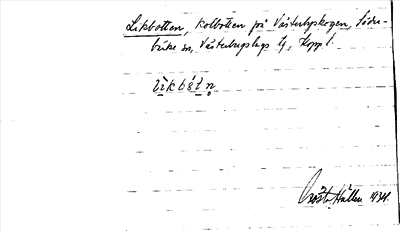 Likbotten, kolbotten på Västerbyskogen, Söder-
bärke sn, Västerbergslags tg, Kopp l.
lìkbót n̥
Gösta Hallen 1934.